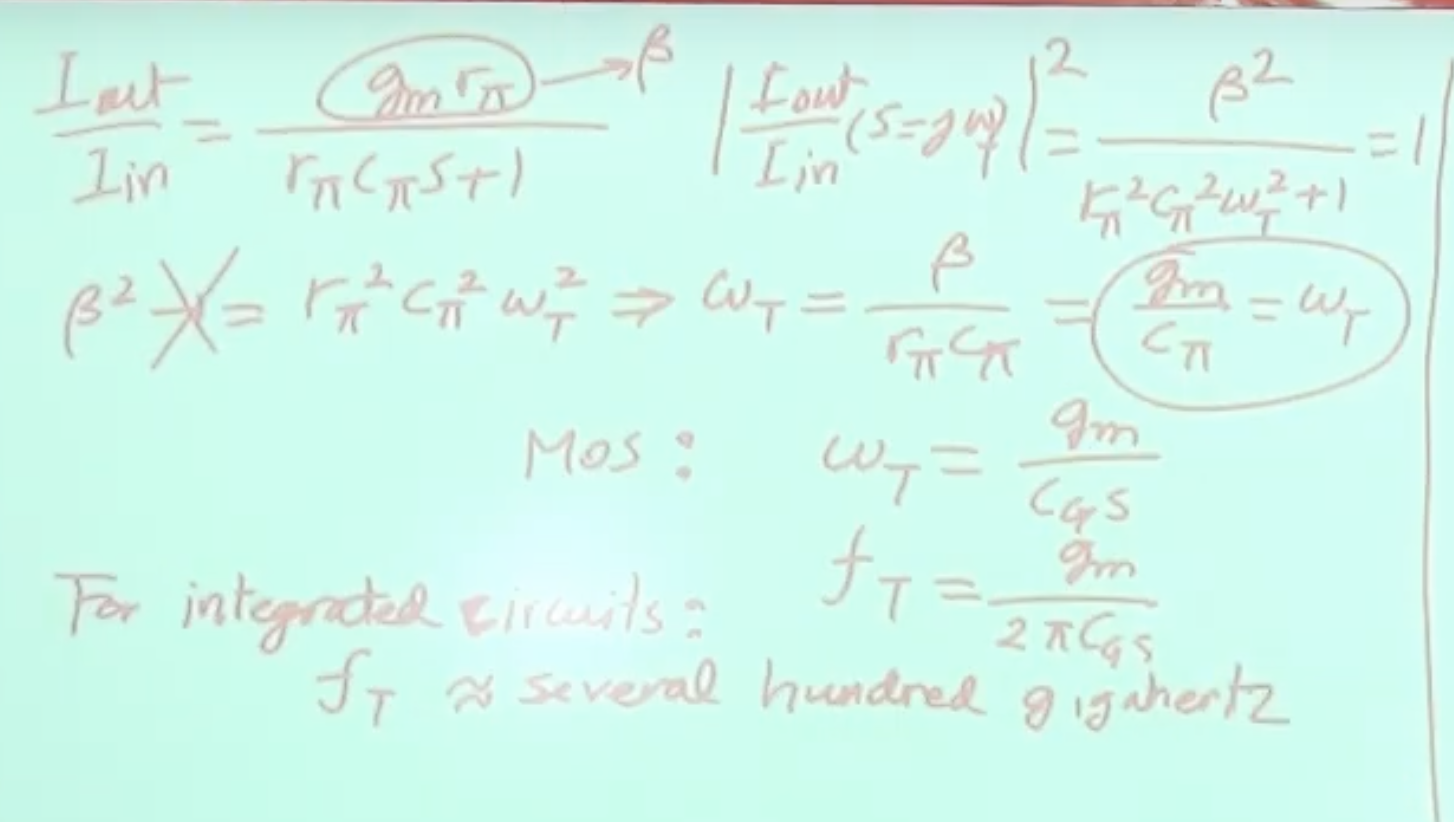 Iout/Iin = gm rπ/(rπ Cπ S+1) → β |Iout/Iin (S=jωT)|² = β²/(rπ² Cπ² ωT² +1) = 1
β² -1 = rπ² Cπ² ωT² ⇒ ωT = β/(rπ Cπ) = gm/Cπ = ωT
MOS: ωT = gm/CGS
fT = gm/(2πCGS)
For integrated circuits:
fT ≈ several hundred gigahertz